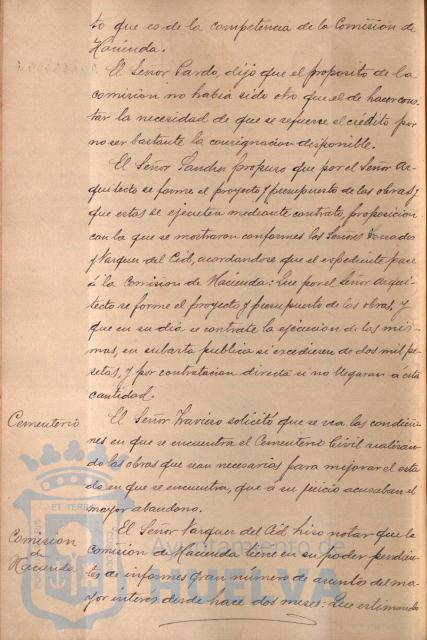 to que es de la competencia de la Comision de
Hacienda.
El Señor Pardo, dijo que el proposito de la
comision no habia sido otro que el de hacer cons-
tar la necesidad de que se refuerce el crédito por
no ser bastante la consignacion disponible.
El Señor propuso que por el Señor Ar-
quitecto se forme el proyecto y presupuesto de las obras, y
que estas se ejecuten mediante contrato, proposicion
con la que se mostraron conformes los Señores
y Vazquez del Cid, acordandose que el expediente pase
á la Comision de Hacienda: Que por el Señor Arqui-
tecto se forme el proyecto y presupuesto de las obras, y
que en su dia se contrate la ejecucion de las mis-
mas, en subasta publica si excedieren de dos mil pe-
setas, y por contratacion directa si no llegaran a esta
cantidad.
Cementerio
El Señor solicitó que se vea las condicio-
nes en que se encuentra el Cementerio Civil realizan-
do las obras que sean necesarias para mejorar el esta-
do en que se encuentra, que á su juicio acusaban el
mayor abandono.
Comision
de
Hacienda
El Señor Vazquez del Cid hizo notar que la
Comision de Hacienda tiene en su poder pendien-
tes de informes gran numero de asuntos del ma-
yor interes desde hace dos meses: Que estimando
Ayuntamiento de
HUELVA